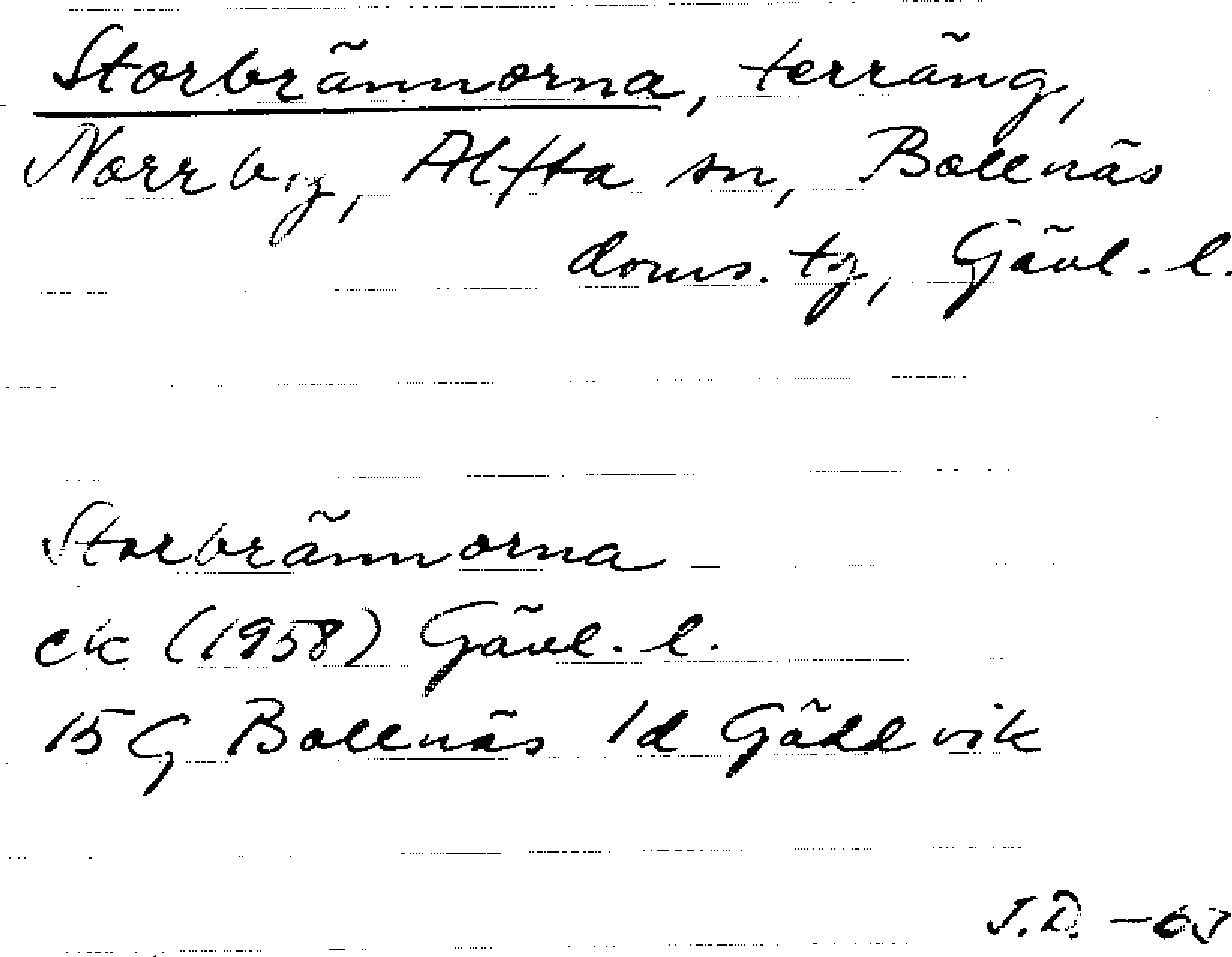 Storbrännorna, terräng,
Norrby, Alfta sn, Bollnäs
doms. tg, Gävl. l.
Storbrännorna
ek (1958) Gävl. l.
15 G Bollnäs 1d Gäddvik
J.D.